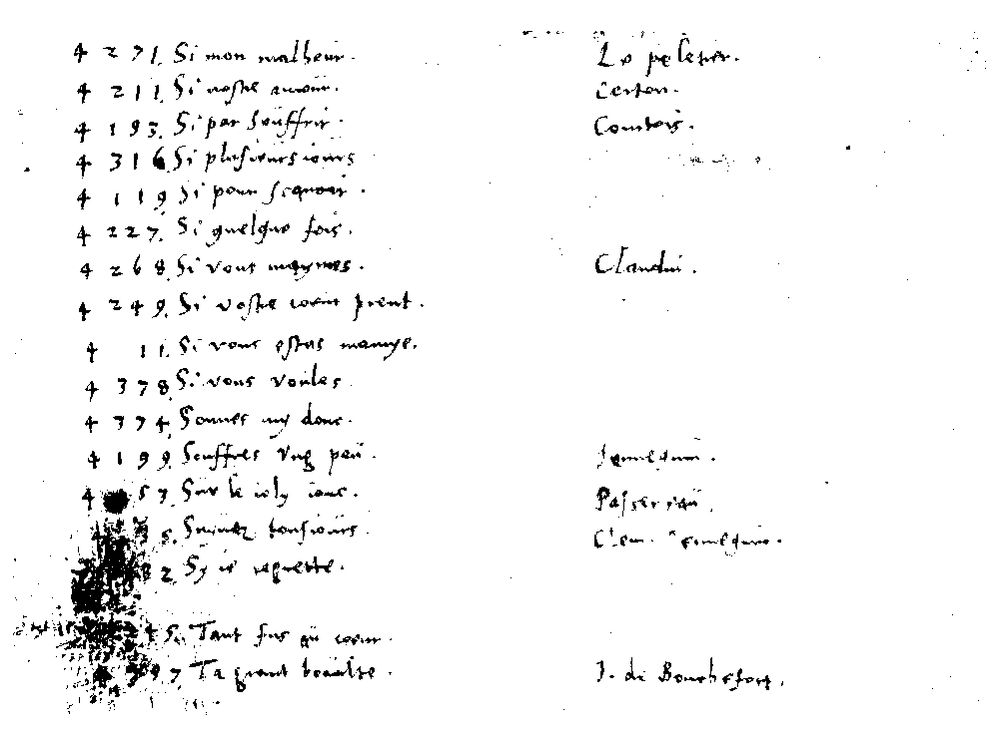 4 271. Si mon malheur. Le peletier.
4 211. Si vostre amour. Certon.
4 193. Si par souffrir. Courtois.
4 316 Si plusieurs iours
4 119 Si pour scauoir.
4 227. Si quelque fois.
4 268. Si vous Claudin.
4 249. Si vostre coeur prent.
4 11. Si vous estes mamye.
4 378 Si vous voules
4 374. Sonnes my donc.
4 199. Souffres vng peu. Jennequin.
4 53. Sur le ioly ionc. Passereau.
5. Suiuez tousiours. Clem. Jennequin.
2. Sy ie regrette.
5. Tant fus au coeur.
97 Ta grant beaulte. J. de Bouchefort.